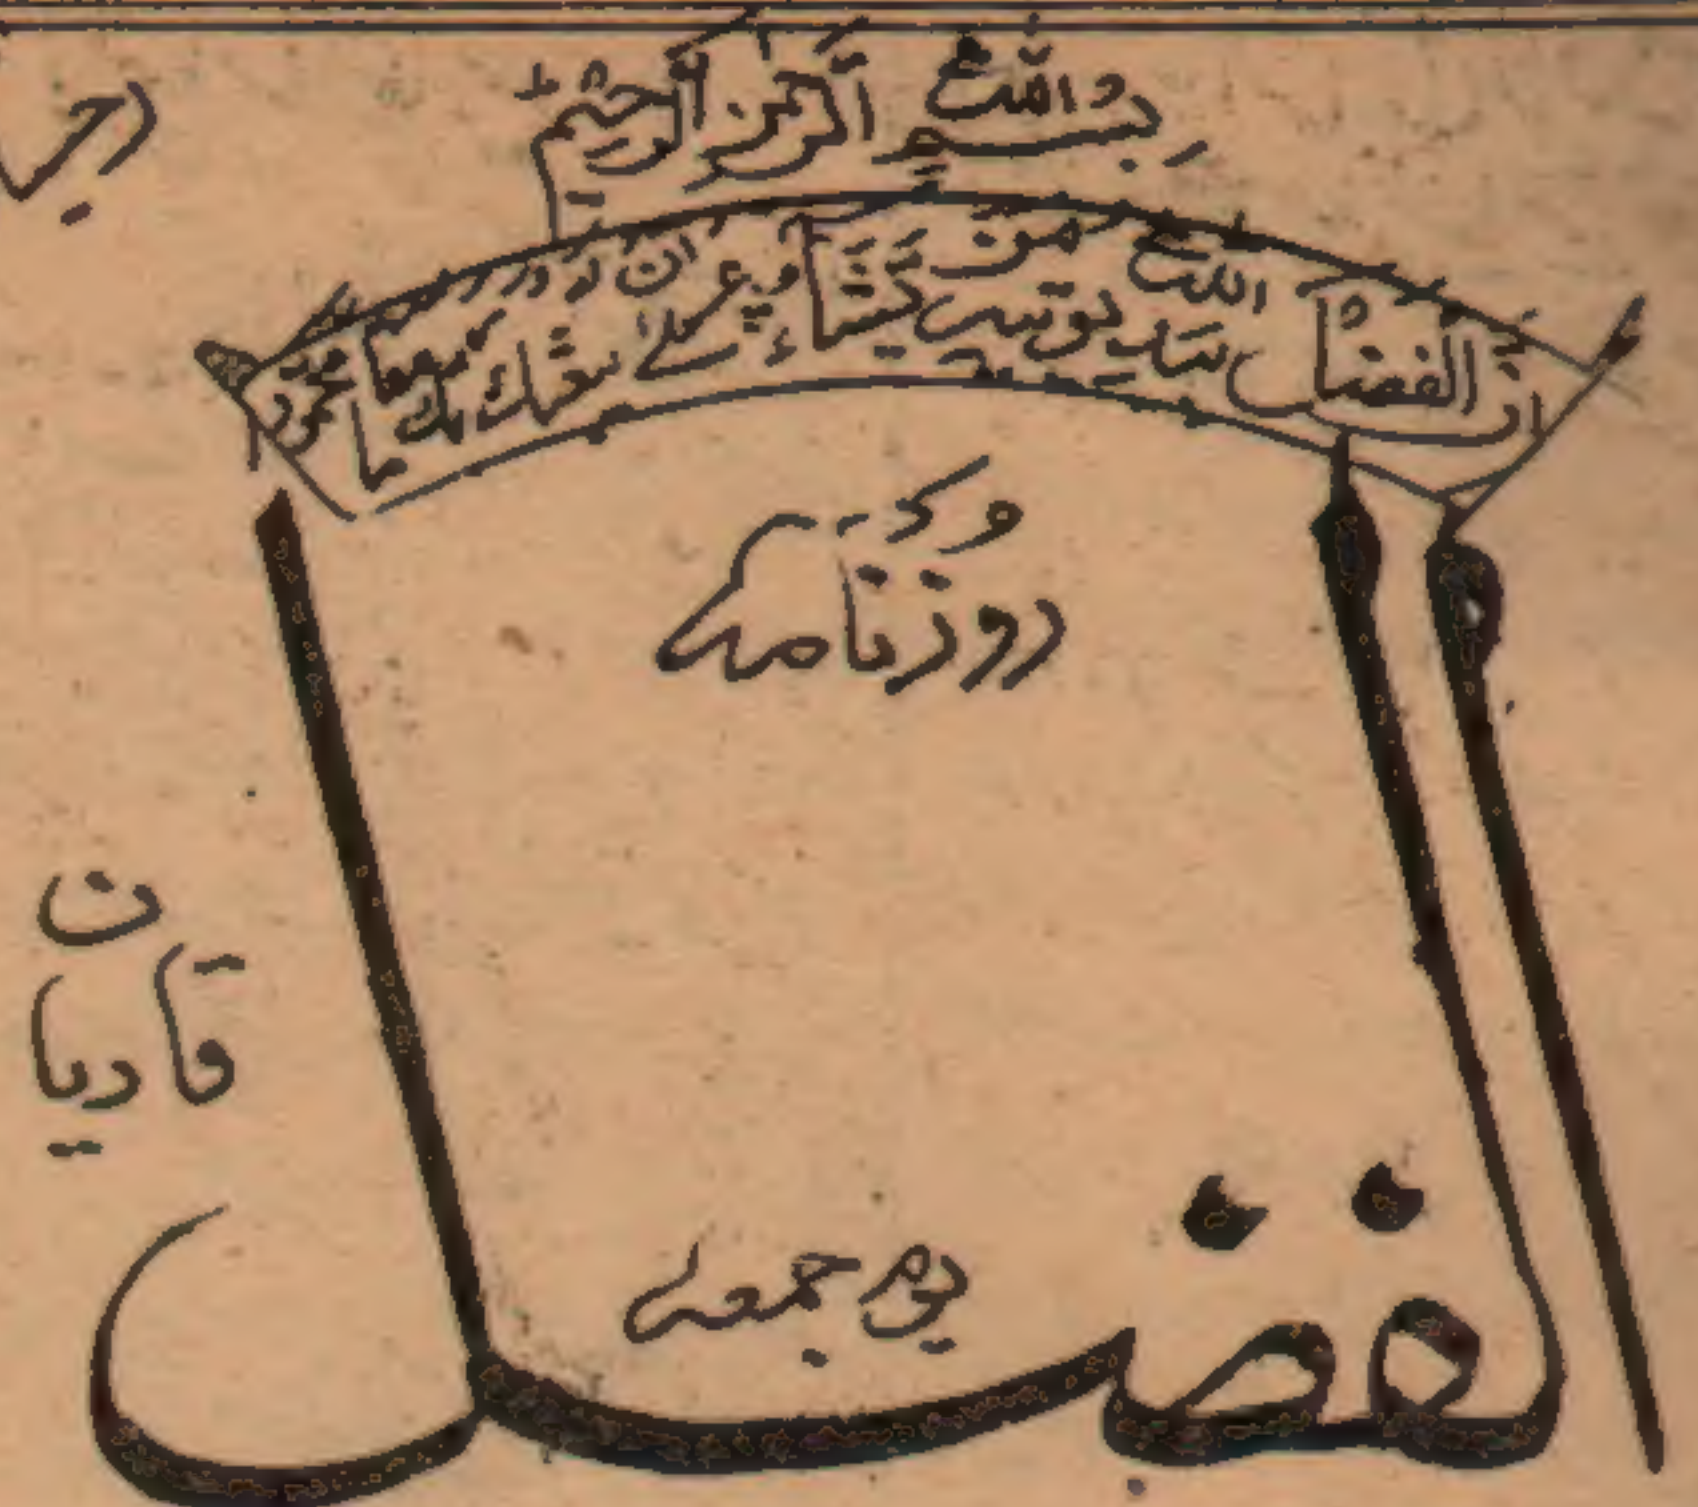 بسم اللہ الرحمن الرحیم
ان الفضل بید اللہ یوتیہ من یشاء عسے ان یبعثک ربک مقاما محمودا
روزنامہ
الفضل
قادیان
یوم جمعہ